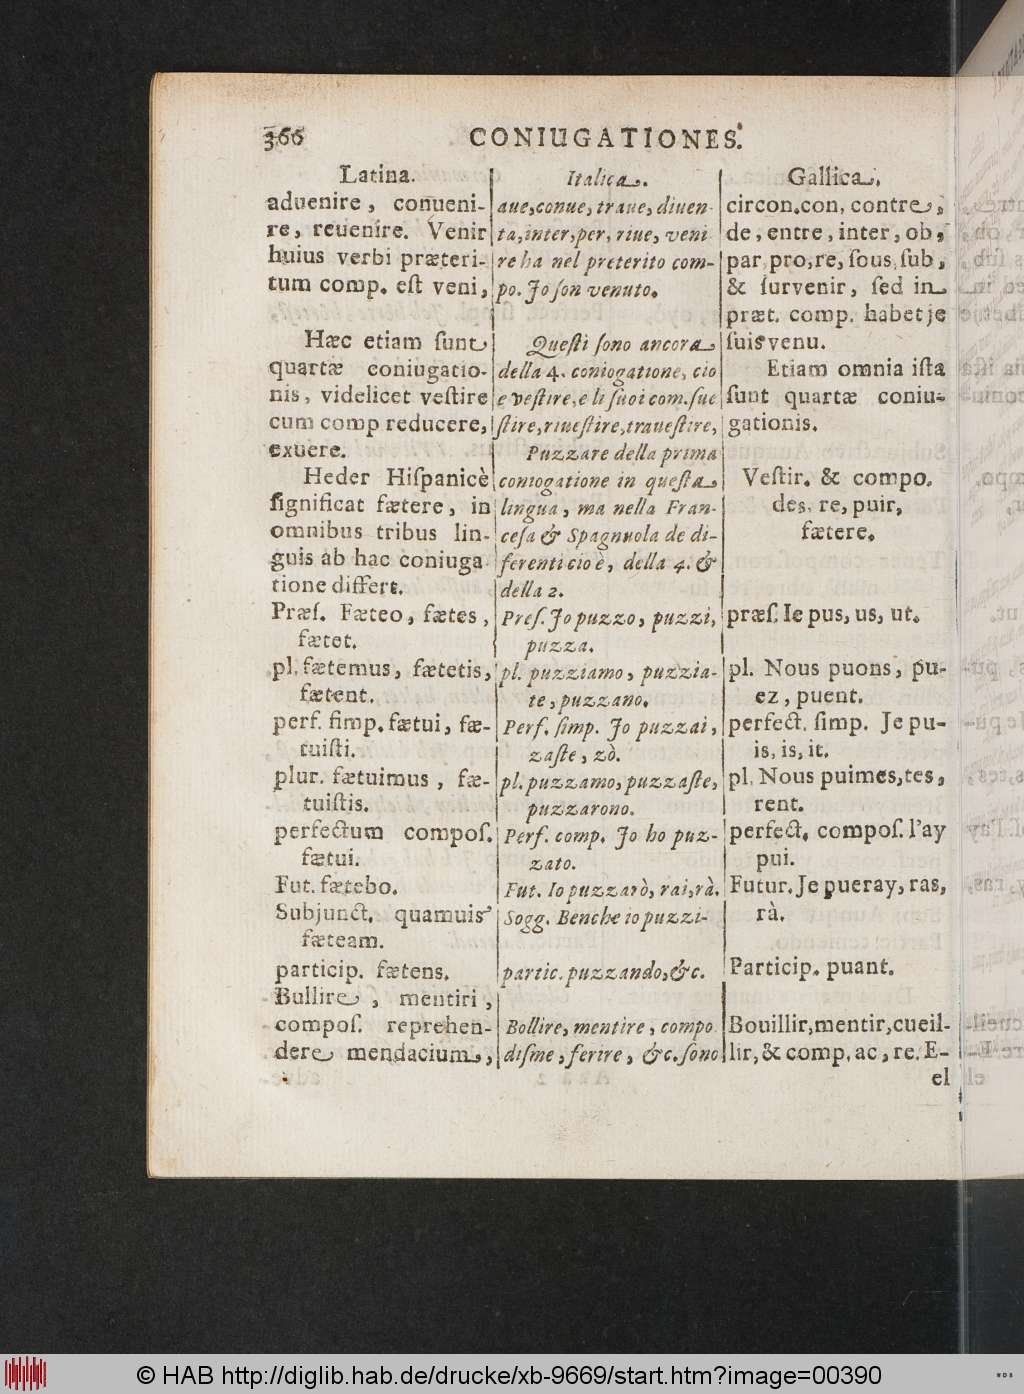 366
CONIUGATIONES.
Latina.
aduenire, conueni-
re, reuenire. Venir
huius verbi præteri-
tum comp. eſt veni,
Hæc etiam ſunt
quartæ coniugatio-
nis, videlicet veſtire
cum comp reducere,
exuere.
Heder Hiſpanicè
ſignificat fætere, in
omnibus tribus lin-
guis ab hac coniuga
tione differt.
Præſ. Fæteo, fætes,
fætet.
pl. fætemus, fætetis,
fætent.
perf. ſimp. fætui, fæ-
tuiſti.
plur. fætuimus, fæ-
tuiſtis.
perfectum compoſ.
fætui.
Fut. fætebo.
Subjunct. quamuis
fæteam.
particip. fætens.
Bullire, mentiri,
compoſ. reprehen-
dere mendacium,
Italica.
aue,conue, traue, diuen-
ta,inter,per, riue, veni
re ha nel preterito com-
po. Jo ſon venuto.
Queſti ſono ancora
della 4. coniogatione, cio
e veſtire, e li ſuoi com. ſue
ſtire, riueſtire, traueſtire,
Puzzare della prima
coniogatione in queſta
lingua, ma nella Fran-
ceſa & Spagnuola de di-
ferenti cioè, della 4. &
della 2.
Preſ. Jo puzzo, puzzi,
puzza.
pl. puzziamo, puzzia-
te, puzzano.
Perf. ſimp. Jo puzzai,
zaſte, zò.
pl. puzzamo, puzzaſte,
puzzarono.
Perf. comp. Jo ho puz-
zato.
Fut. Io puzzarò, rai, rà.
Sogg. Benche io puzzi-
partic. puzzando, &c.
Bollire, mentire, compo
diſme, ferire, &c. ſono
Gallica.
circon.con, contre,
de, entre, inter, ob,
par, pro, re, ſous, ſub,
& ſurvenir, ſed in
præt. comp. habet je
ſuis venu.
Etiam omnia iſta
ſunt quartæ coniu-
gationis.
Veſtir. & compo.
des, re, puir,
fætere.
præſ. Ie pus, us, ut.
pl. Nous puons, pu-
ez, puent.
perfect. ſimp. Je pu-
is, is, it.
pl. Nous puimes, tes,
rent.
perfect. compoſ. l'ay
pui.
Futur. Je pueray, ras,
rà.
Particip. puant.
Bouillir, mentir, cueil-
lir, & comp. ac, re. E-
el
© HAB http://diglib.hab.de/drucke/xb-9669/start.htm?image=00390